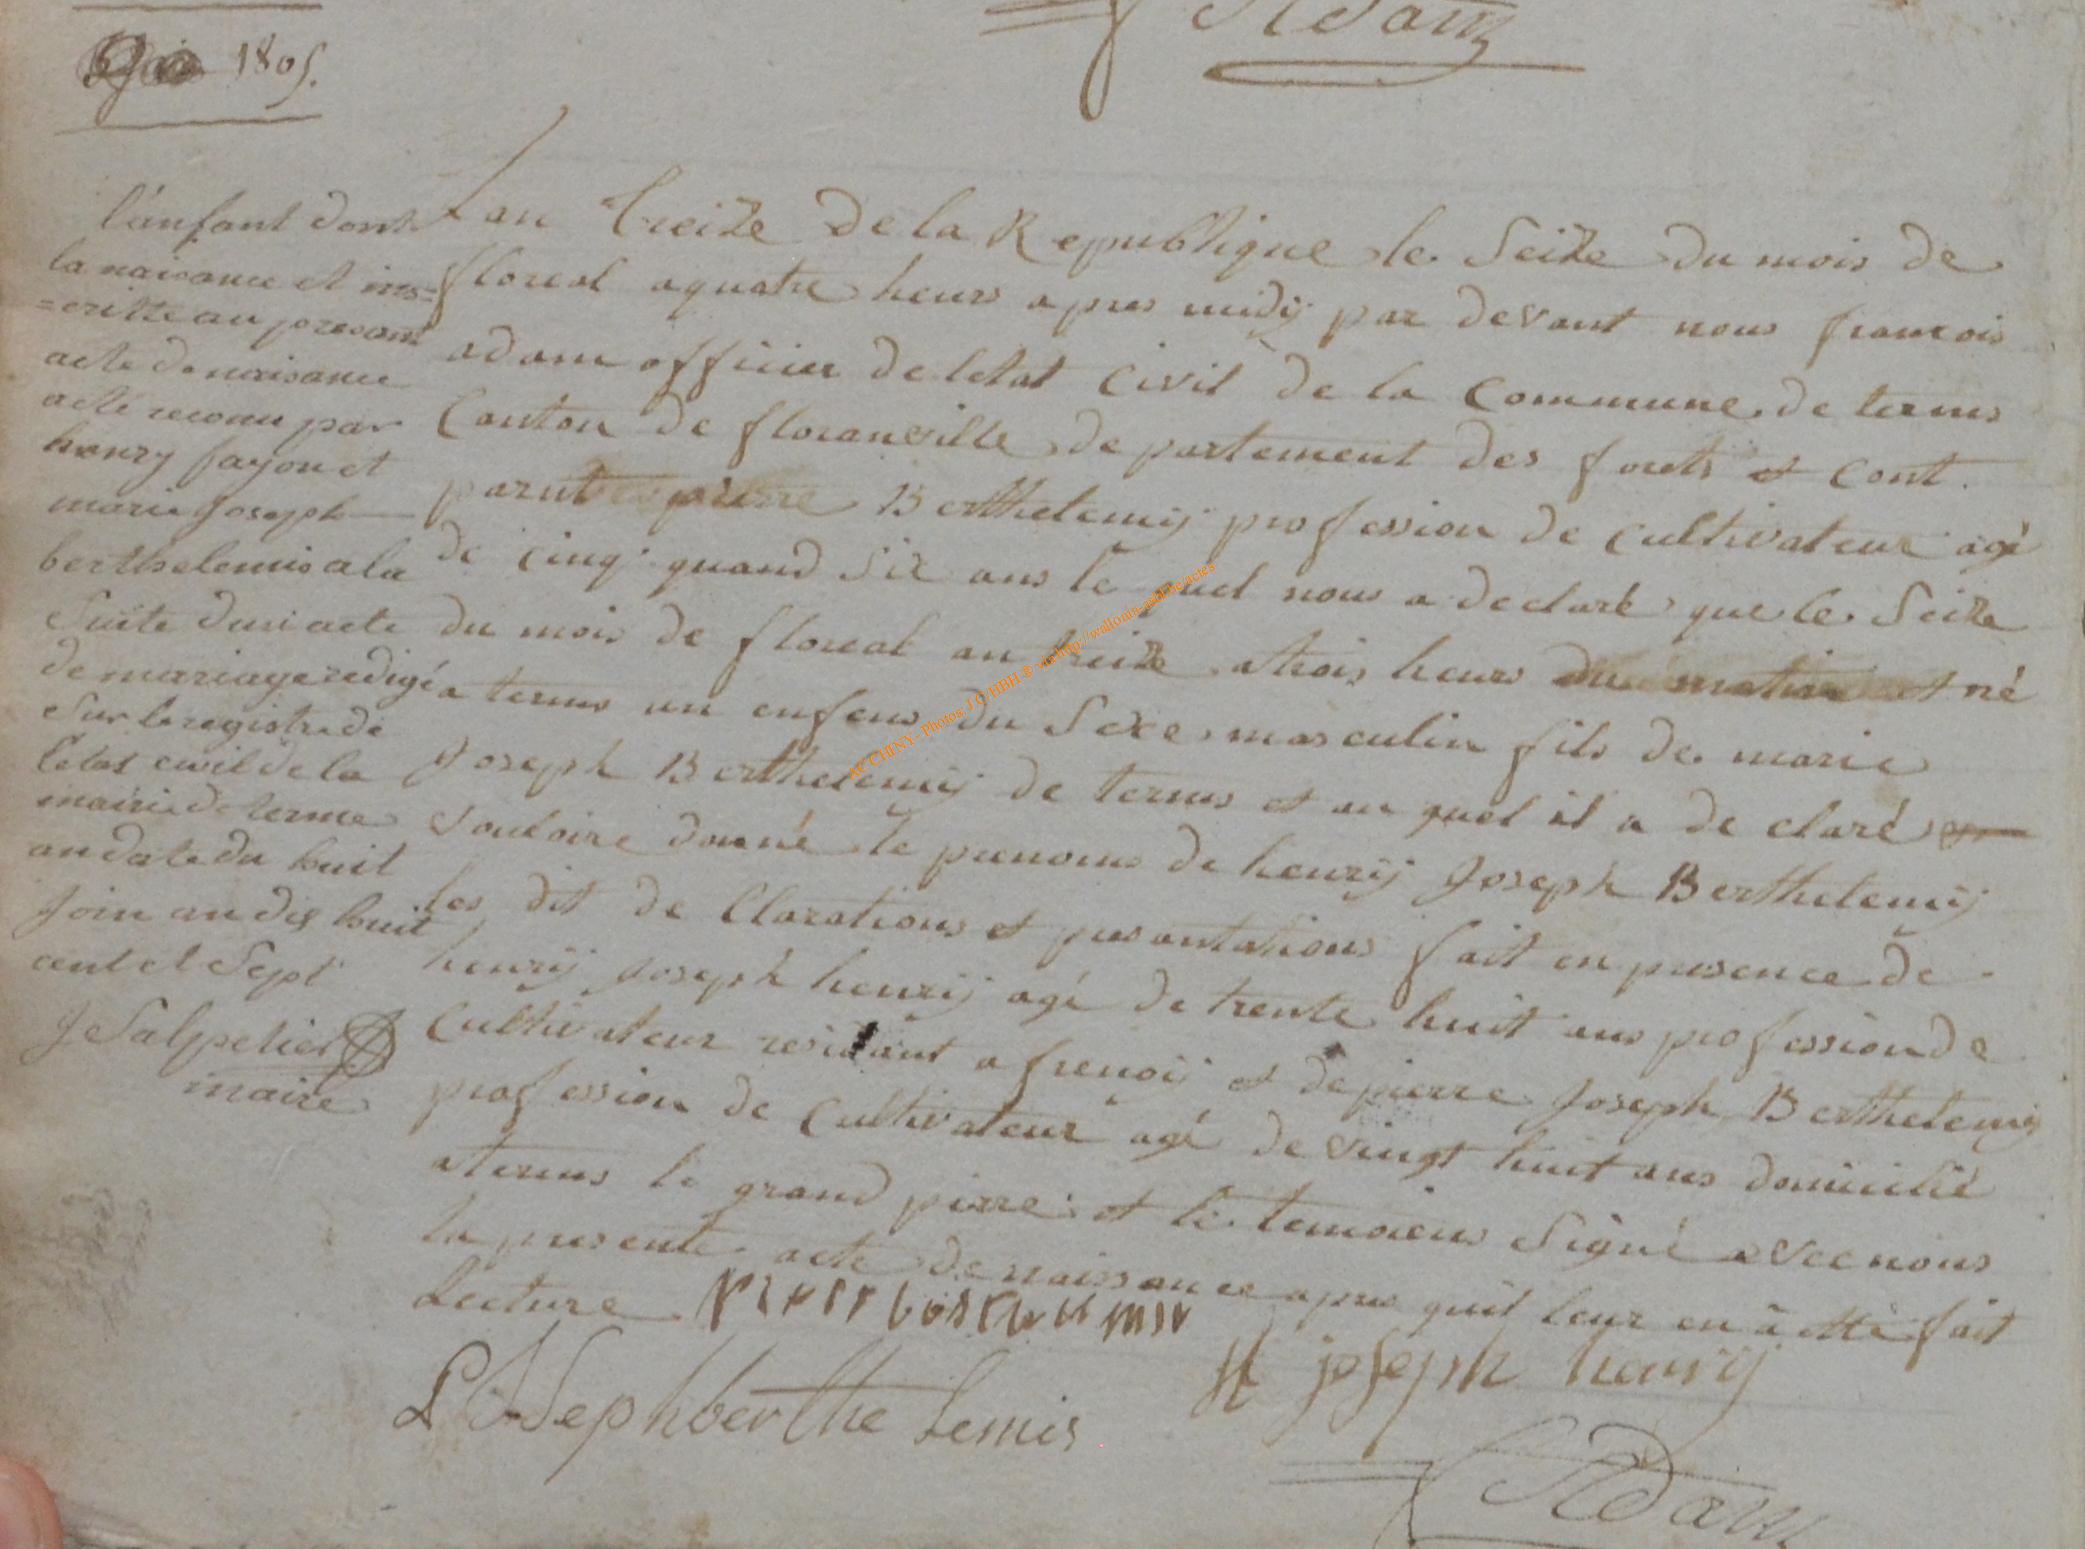 Adam
1805.
L'an treize de la Republique le Seize du mois de
floreal a quatre heurs apres midÿ par devant nous francois
adam officier de letat Civil de la Commune de termes
Canton de floranville departement des forets et Cont.
parut pierre Berthelemÿ profession de cultivateur agé
de cinq quand six ans le quel nous a declaré que le Seize
du mois de floreal an treize atrois heurs du matin et né
a termes un enfens du Sexe masculin fils de marie
Joseph Berthelemÿ de termes et au quel il a de claré
vouloire donné le prenoms de henrÿ Joseph Berthelemÿ
les dit de Clarations et presantations fait en presence de
henrÿ Joseph henrÿ agé de trente huit ans profession de
Cultivateur residant a frenoÿ et de pierre Joseph Berthelemÿ
profession de Cultivateur agé de vingt huit ans domicilié
a termes le grand pierre et le temoiens Signé avec nous
la presente acte de naissance apres quil leur en à etté fait
Lecture
l'énfant dont
la naisance et ins=
=critte au presant
acte de naisance
a été reconu par
henry fayon et
marie Joseph
berthelemis a la
Suite d'un acte
de mariage redigé
Sur le registre de
l'etat civil de la
mairie de terme
an date du huit
Join an dix huit
cent et Sept
J Salpetier
maire
H joseph henrÿ
P Josephberthe Lemis
Adam
AC CHINY - Photos J C HBH ® via http://wallonia-asbl.be/actes